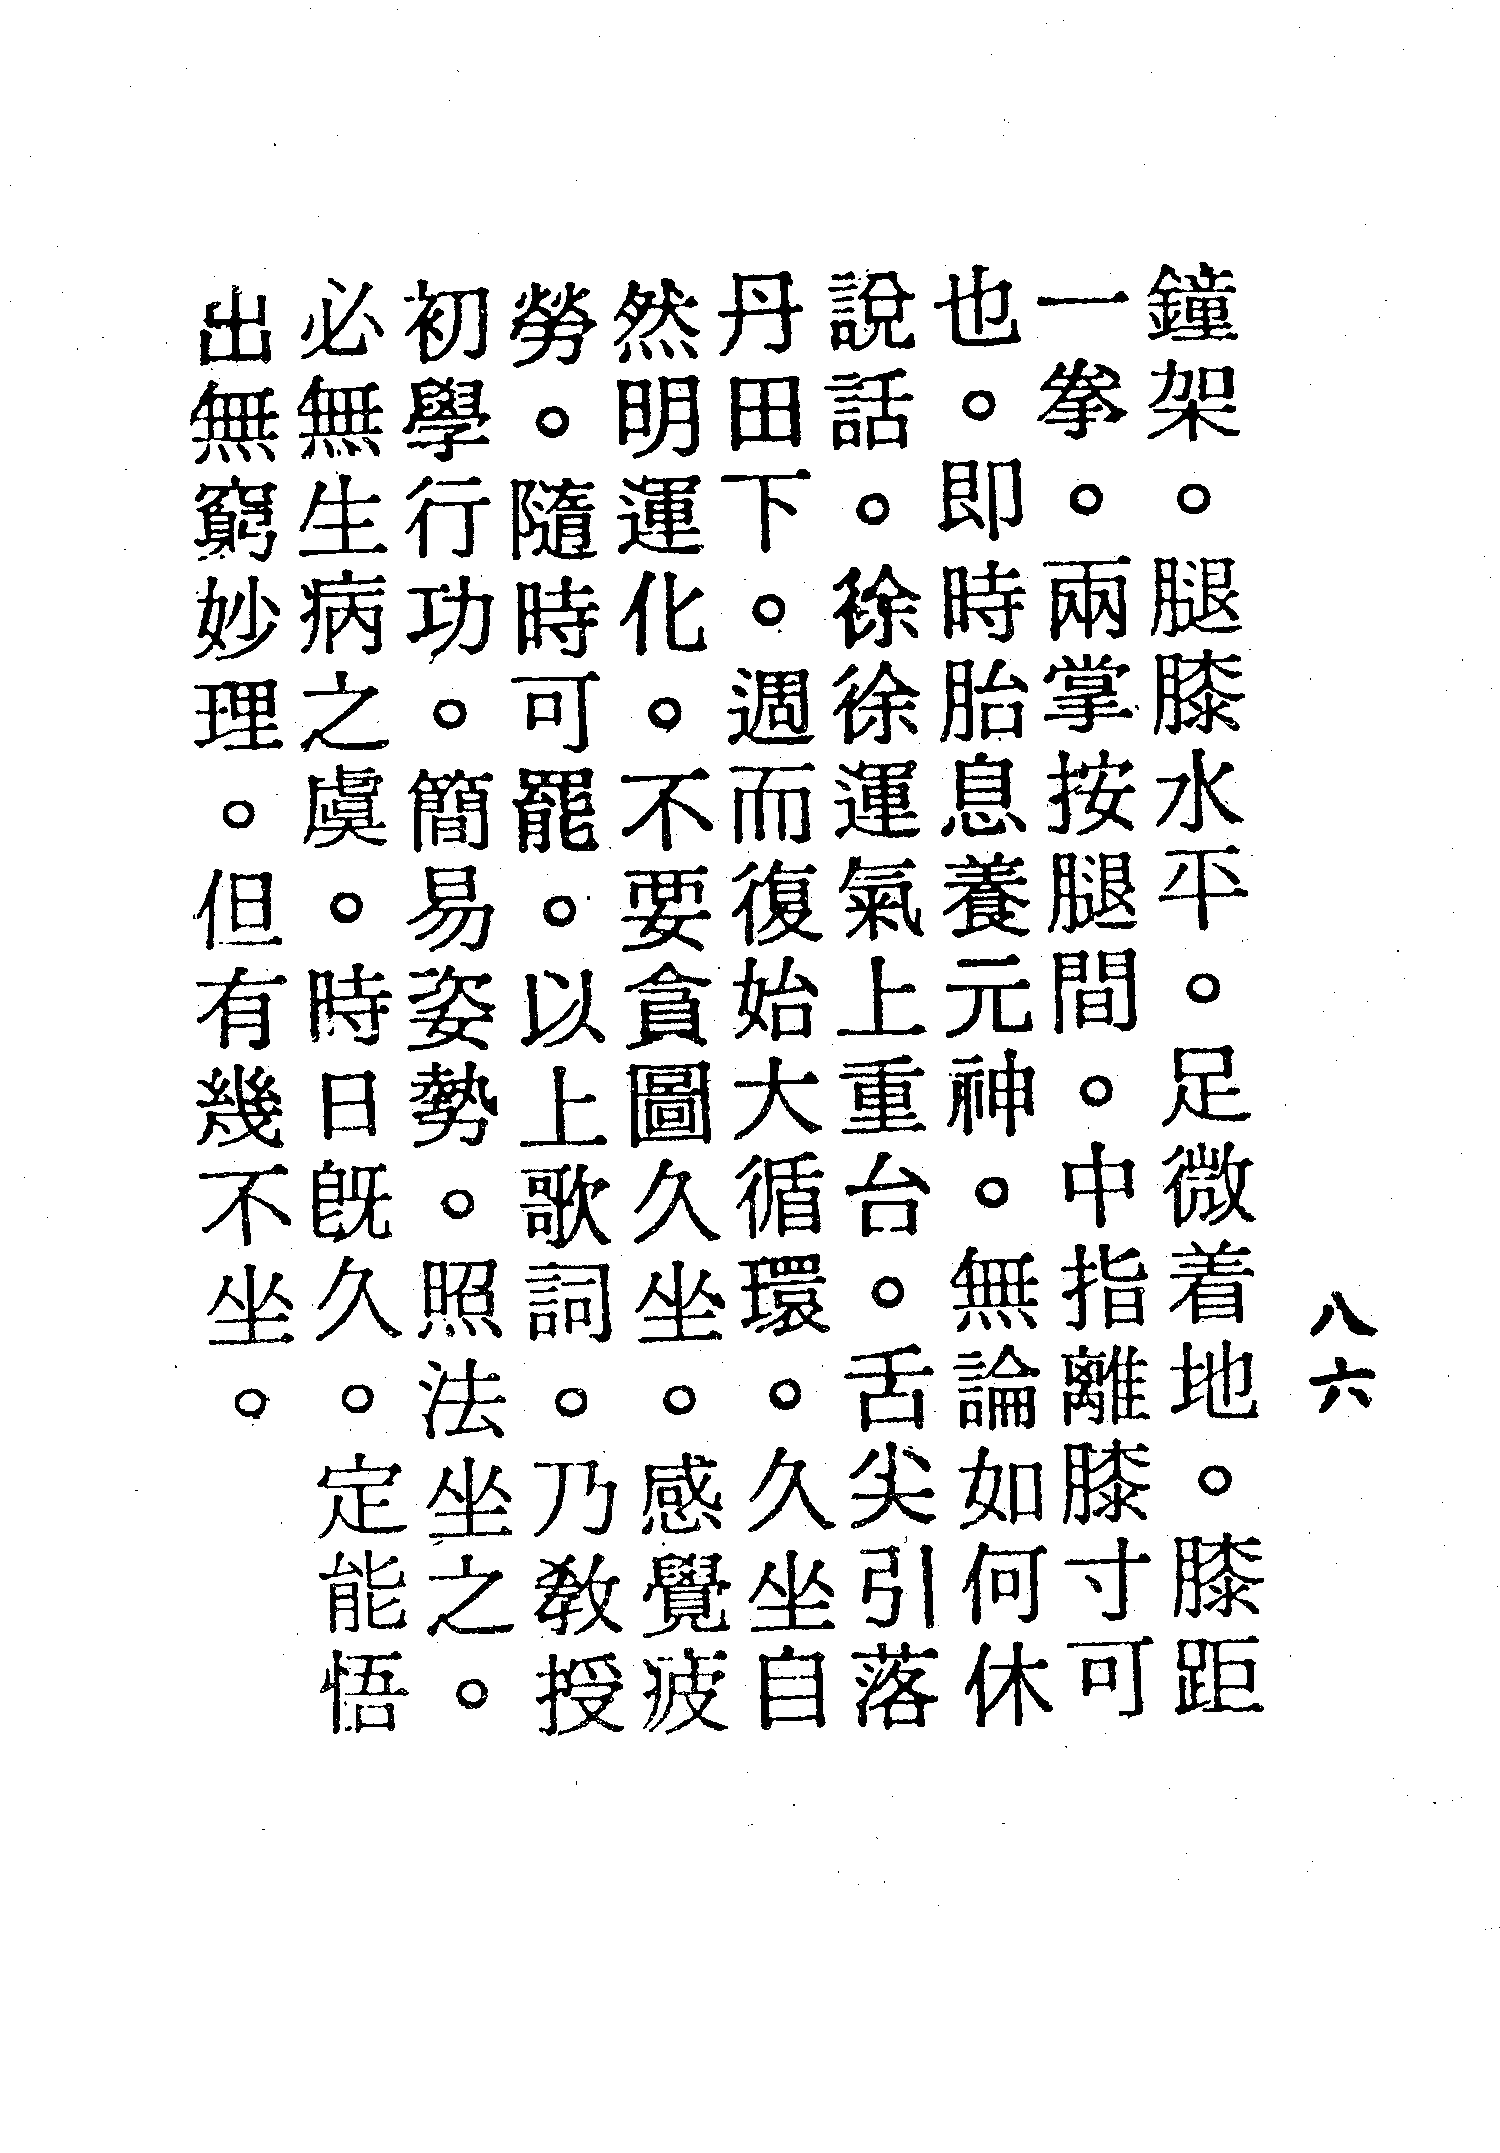 八六
鐘架。腿膝水平。足微着地。膝距
一拳。兩掌按腿間。中指離膝寸可
也。即時胎息養元神。無論如何休
說話。徐徐運氣上重台。舌尖引落
丹田下。週而復始大循環。久坐自
然明運化。不要貪圖久坐。感覺疲
勞。隨時可罷。以上歌詞。乃教授
初學行功。簡易姿勢。照法坐之。
必無生病之虞。時日既久。定能悟
出無窮妙理。但有幾不坐。